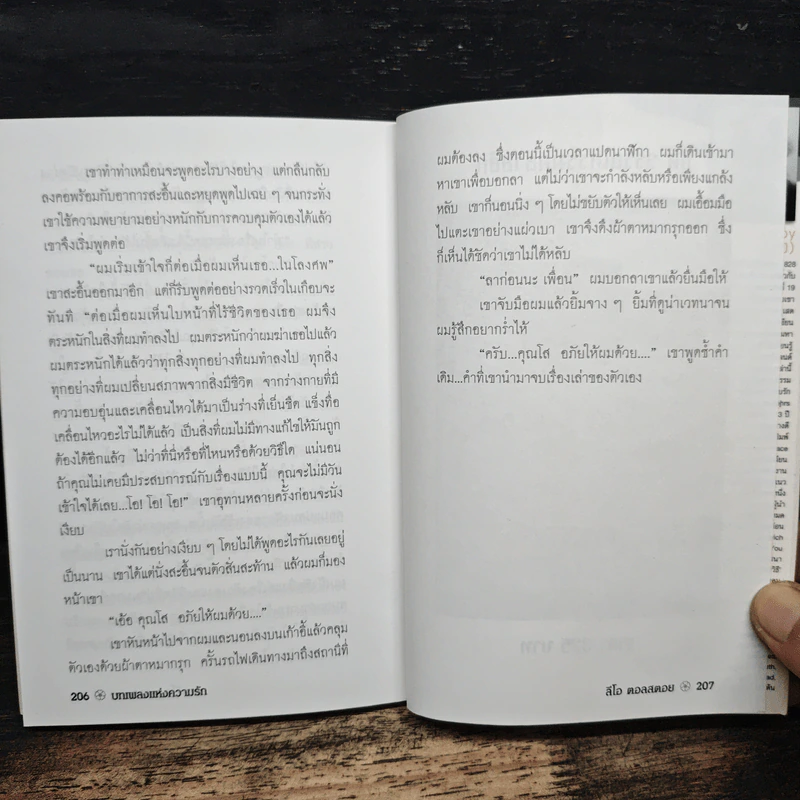 เขาทำท่าเหมือนจะพูดอะไรบางอย่าง แต่กลืนกลับ
ลงคอพร้อมกับอาการสะอื้นและหยุดพูดไปเฉย ๆ จนกระทั่ง
เขาใช้ความพยายามอย่างหนักกับการควบคุมตัวเองได้แล้ว
เขาจึงเริ่มพูดต่อ
“ผมเริ่มเข้าใจก็ต่อเมื่อผมเห็นเธอ...ในโลงศพ”
เขาสะอื้นออกมาอีก แต่ก็รีบพูดต่ออย่างรวดเร็วในเกือบจะ
ทันที “ต่อเมื่อผมเห็นใบหน้าที่ไร้ชีวิตของเธอ ผมจึง
ตระหนักในสิ่งที่ผมทำลงไป ผมตระหนักว่าผมฆ่าเธอไปแล้ว
ผมตระหนักได้แล้วว่าทุกสิ่งทุกอย่างที่ผมทำลงไป ทุกสิ่ง
ทุกอย่างที่ผมเปลี่ยนสภาพจากสิ่งมีชีวิต จากร่างกายที่มี
ความอบอุ่นและเคลื่อนไหวได้มาเป็นร่างที่เย็นชืด แข็งทื่อ
เคลื่อนไหวอะไรไม่ได้แล้ว เป็นสิ่งที่ผมไม่มีทางแก้ไขให้มันถูก
ต้องได้อีกแล้ว ไม่ว่าที่นี่หรือที่ไหนหรือด้วยวิธีใด แน่นอน
ถ้าคุณไม่เคยมีประสบการณ์กับเรื่องแบบนี้ คุณจะไม่มีวัน
เข้าใจได้เลย...โอ! โอ! โอ!” เขาอุทานหลายครั้งก่อนจะนั่ง
เงียบ
เรานั่งกันอย่างเงียบ ๆ โดยไม่ได้พูดอะไรกันเลยอยู่
เป็นนาน เขาได้แต่นั่งสะอื้นจนตัวสั่นสะท้าน แล้วผมก็มอง
หน้าเขา
“เอ้อ คุณโส อภัยให้ผมด้วย....”
เขาหันหน้าไปจากผมและนอนลงบนเก้าอี้แล้วคลุม
ตัวเองด้วยผ้าตาหมากรุก ครั้นรถไฟเดินทางมาถึงสถานีที่
206 บทเพลงแห่งความรัก
ผมต้องลง ซึ่งตอนนี้เป็นเวลาแปดนาฬิกา ผมก็เดินเข้ามา
หาเขาเพื่อบอกลา แต่ไม่ว่าเขาจะกำลังหลับหรือเพียงแกล้ง
หลับ เขาก็นอนนิ่ง ๆ โดยไม่ขยับตัวให้เห็นเลย ผมเอื้อมมือ
ไปแตะเขาอย่างแผ่วเบา เขาจึงดึงผ้าตาหมากรุกออก ซึ่ง
ก็เห็นได้ชัดว่าเขาไม่ได้หลับ
“ลาก่อนนะ เพื่อน” ผมบอกลาเขาแล้วยื่นมือให้
เขาจับมือผมแล้วยิ้มจาง ๆ ยิ้มที่ดูน่าเวทนาจน
ผมรู้สึกอยากร่ำไห้
“ครับ...คุณโส อภัยให้ผมด้วย....” เขาพูดซ้ำคำ
เดิม...คำที่เขานำมาจบเรื่องเล่าของตัวเอง
ลีโอ ตอลสตอย 207